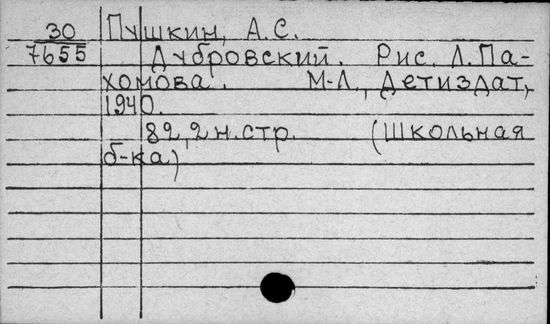 30 Пушкин, А.С.
7655 Дубровский. Рис. Л.Па-
хомова. М-Л., Детиздат,
1940.
82,2н.стр. (Школьная
б-ка)